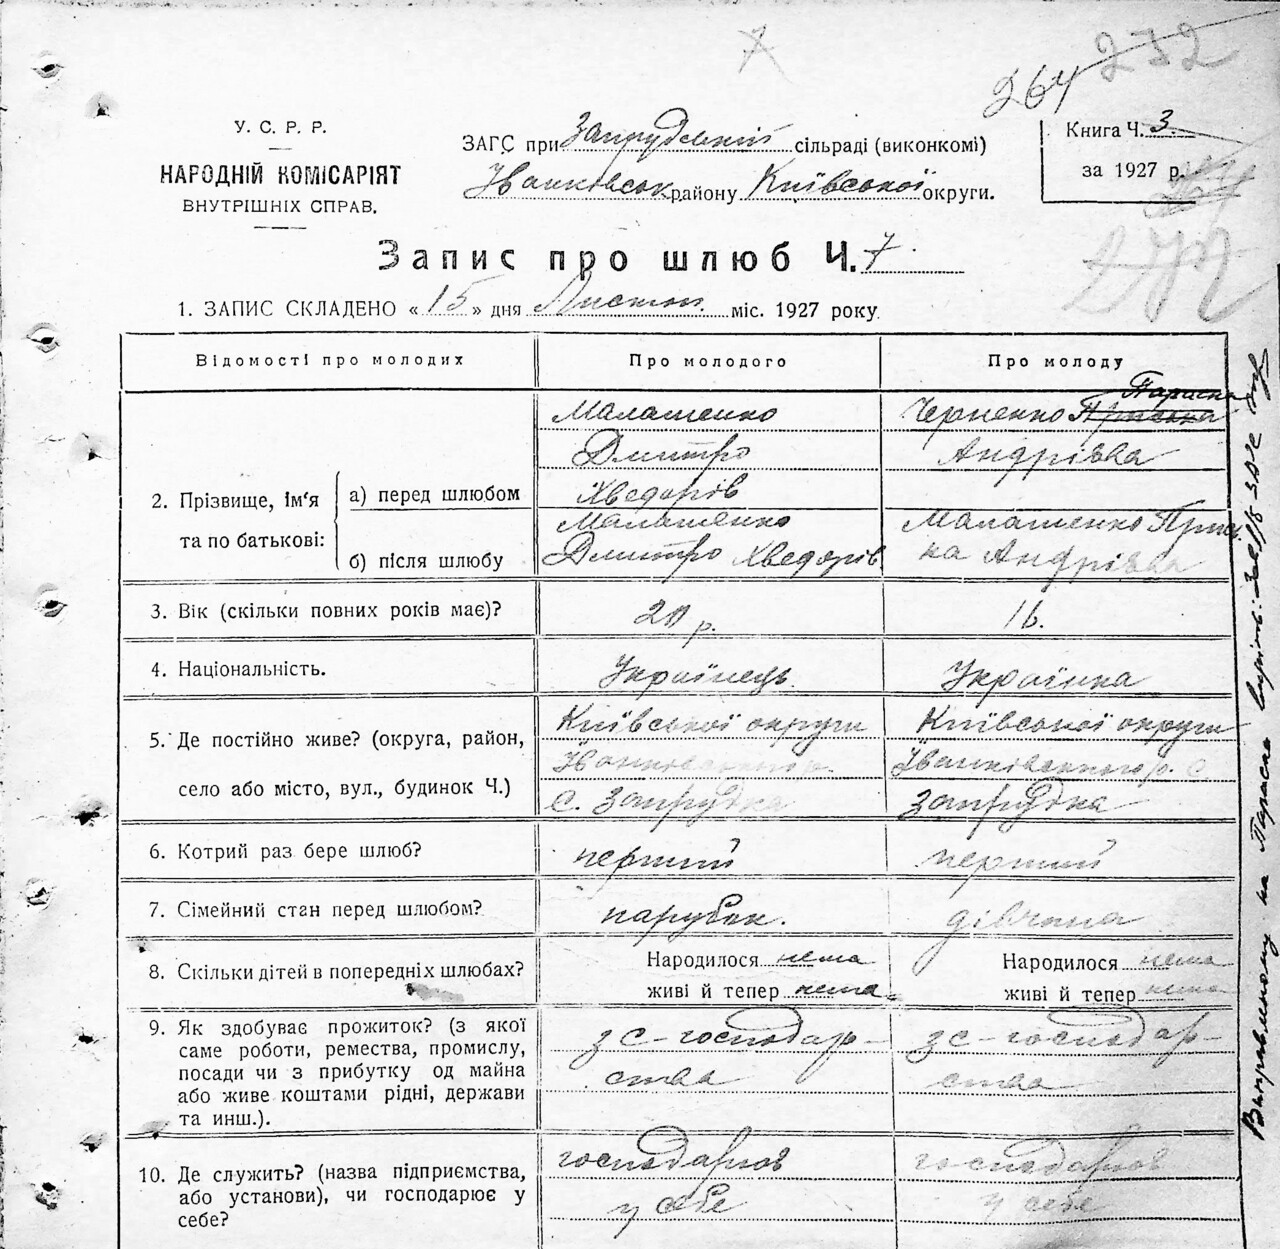 7
264 232
У. С. Р. Р.
НАРОДНІЙ КОМІСАРІЯТ
ВНУТРІШНІХ СПРАВ.
ЗАГС при Запрудській сільраді (виконкомі)
Іванківськ району Київської округи.
Книга Ч. 3
за 1927 р.
Запис про шлюб Ч. 7
1. ЗАПИС СКЛАДЕНО « 15 » дня Листоп. міс. 1927 року
Відомості про молодих Про молодого Про молоду
2. Прізвище, ім'я та по батькові:
а) перед шлюбом
Малашенко
Дмитро
Хведорів
Параска
Черненко Приська
Андрівка
б) після шлюбу
Малашенко
Дмитро Хведорів
Малашенко Прись
ка Андрівка
3. Вік (скільки повних років має)? 20 р. 16.
4. Національність. Українець Українка
5. Де постійно живе? (округа, район,
село або місто, вул., будинок Ч.)
Київської округи
Іванківського р.
с. Запрудка
Київської округи
Іванківського р. с.
Запрудка
6. Котрий раз бере шлюб? перший перший
7. Сімейний стан перед шлюбом? парубок. дівчина
8. Скільки дітей в попередніх шлюбах?
Народилося нема
живі й тепер нема
Народилося нема
живі й тепер нема
9. Як здобуває прожиток? (з якої
саме роботи, ремества, промислу,
посади чи з прибутку од майна
або живе коштами рідні, держави
та инш.).
з с-господар-
ства
з с-господар-
ства
10. Де служить? (назва підприємства,
або установи), чи господарює у
себе?
господарює
у себе
господарює
у себе
Виправленому на Параска вірить: ЗАГС